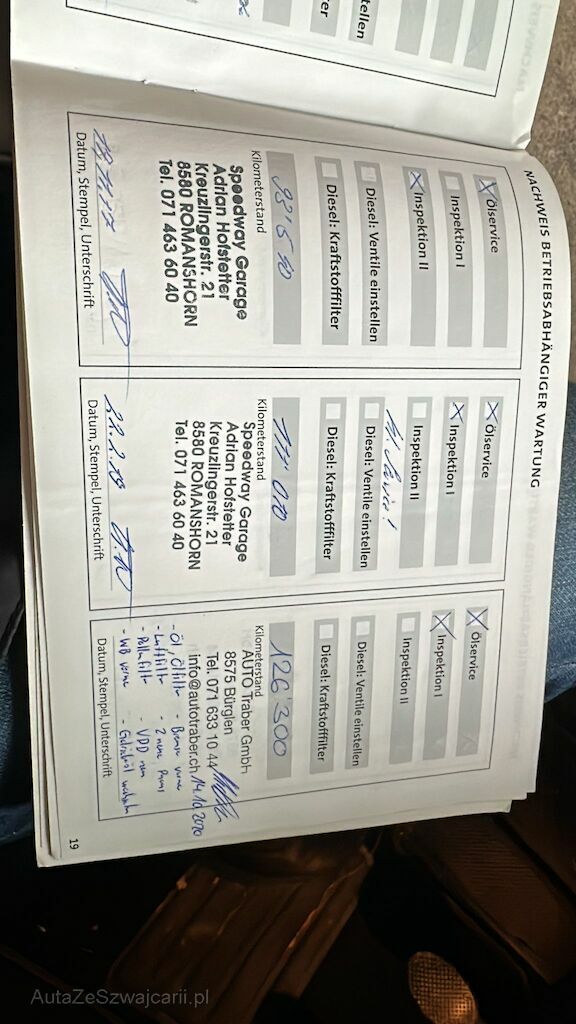 NACHWEIS BETRIEBSABHÄNGIGER WARTUNG
Ölservice
Inspektion I
Inspektion II
Diesel: Ventile einstellen
Diesel: Kraftstofffilter
98'650
Kilometerstand
Speedway Garage
Adrian Hofstetter
Kreuzlingerstr. 21
8580 ROMANSHORN
Tel. 071 463 60 40
Datum, Stempel, Unterschrift
Ölservice
Inspektion I
Inspektion II
Diesel: Ventile einstellen
Diesel: Kraftstofffilter
111'010
Kilometerstand
Speedway Garage
Adrian Hofstetter
Kreuzlingerstr. 21
8580 ROMANSHORN
Tel. 071 463 60 40
Datum, Stempel, Unterschrift
Ölservice
Inspektion I
Inspektion II
Diesel: Ventile einstellen
Diesel: Kraftstofffilter
126'300
Kilometerstand
AUTO Traber GmbH
8575 Bürglen
Tel. 071 633 10 44
info@autotraber.ch 14.10.2020
- Öl, Ölfilter
- Luftfilter
- Pollenfilter - VDD neu
Datum, Stempel, Unterschrift
19
AutaZeSzwajcarii.pl